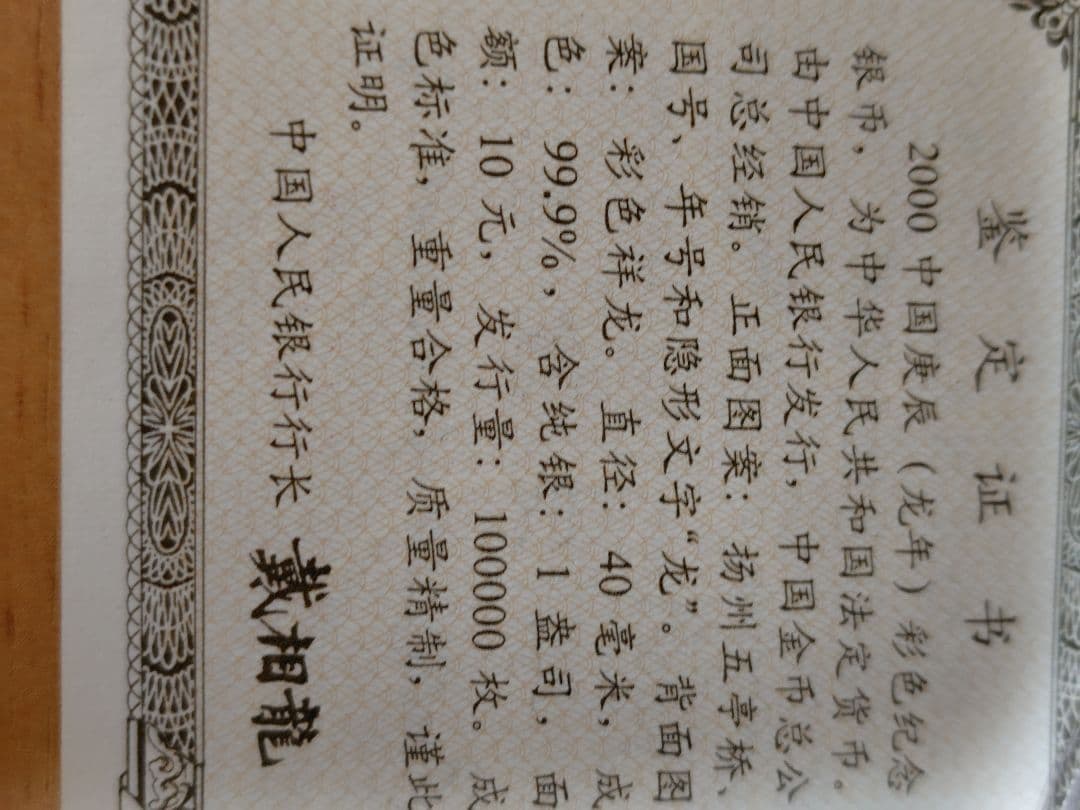 鉴定证书
2000中国庚辰（龙年）彩色纪念
银币，为中华人民共和国法定货币。
由中国人民银行发行，中国金币总公
司总经销。正面图案：扬州五亭桥、
国号、年号和隐形文字“龙”。背面图
案：彩色祥龙。直径：40毫米，成
色：99.9%，含纯银：1盎司，面
额：10元，发行量：100000枚。成
色标准，重量合格，质量精制，谨此
证明。
中国人民银行行长 戴相龍